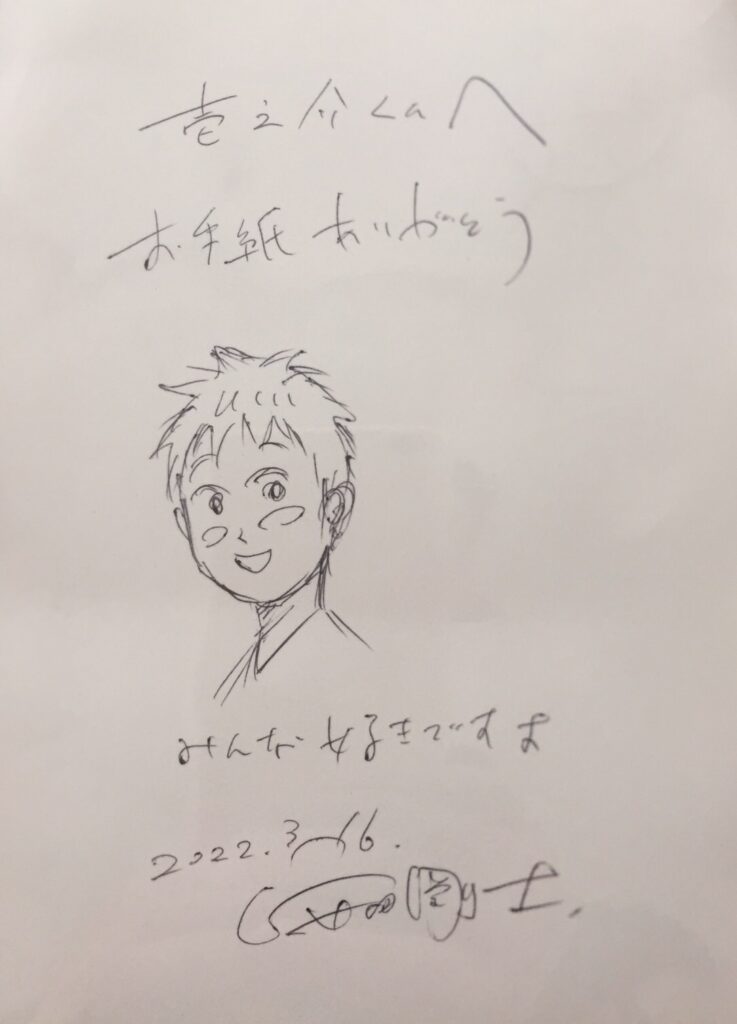 壱之介くんへ
お手紙ありがとう
みんな好きですよ
2022.3/16.
剛士.